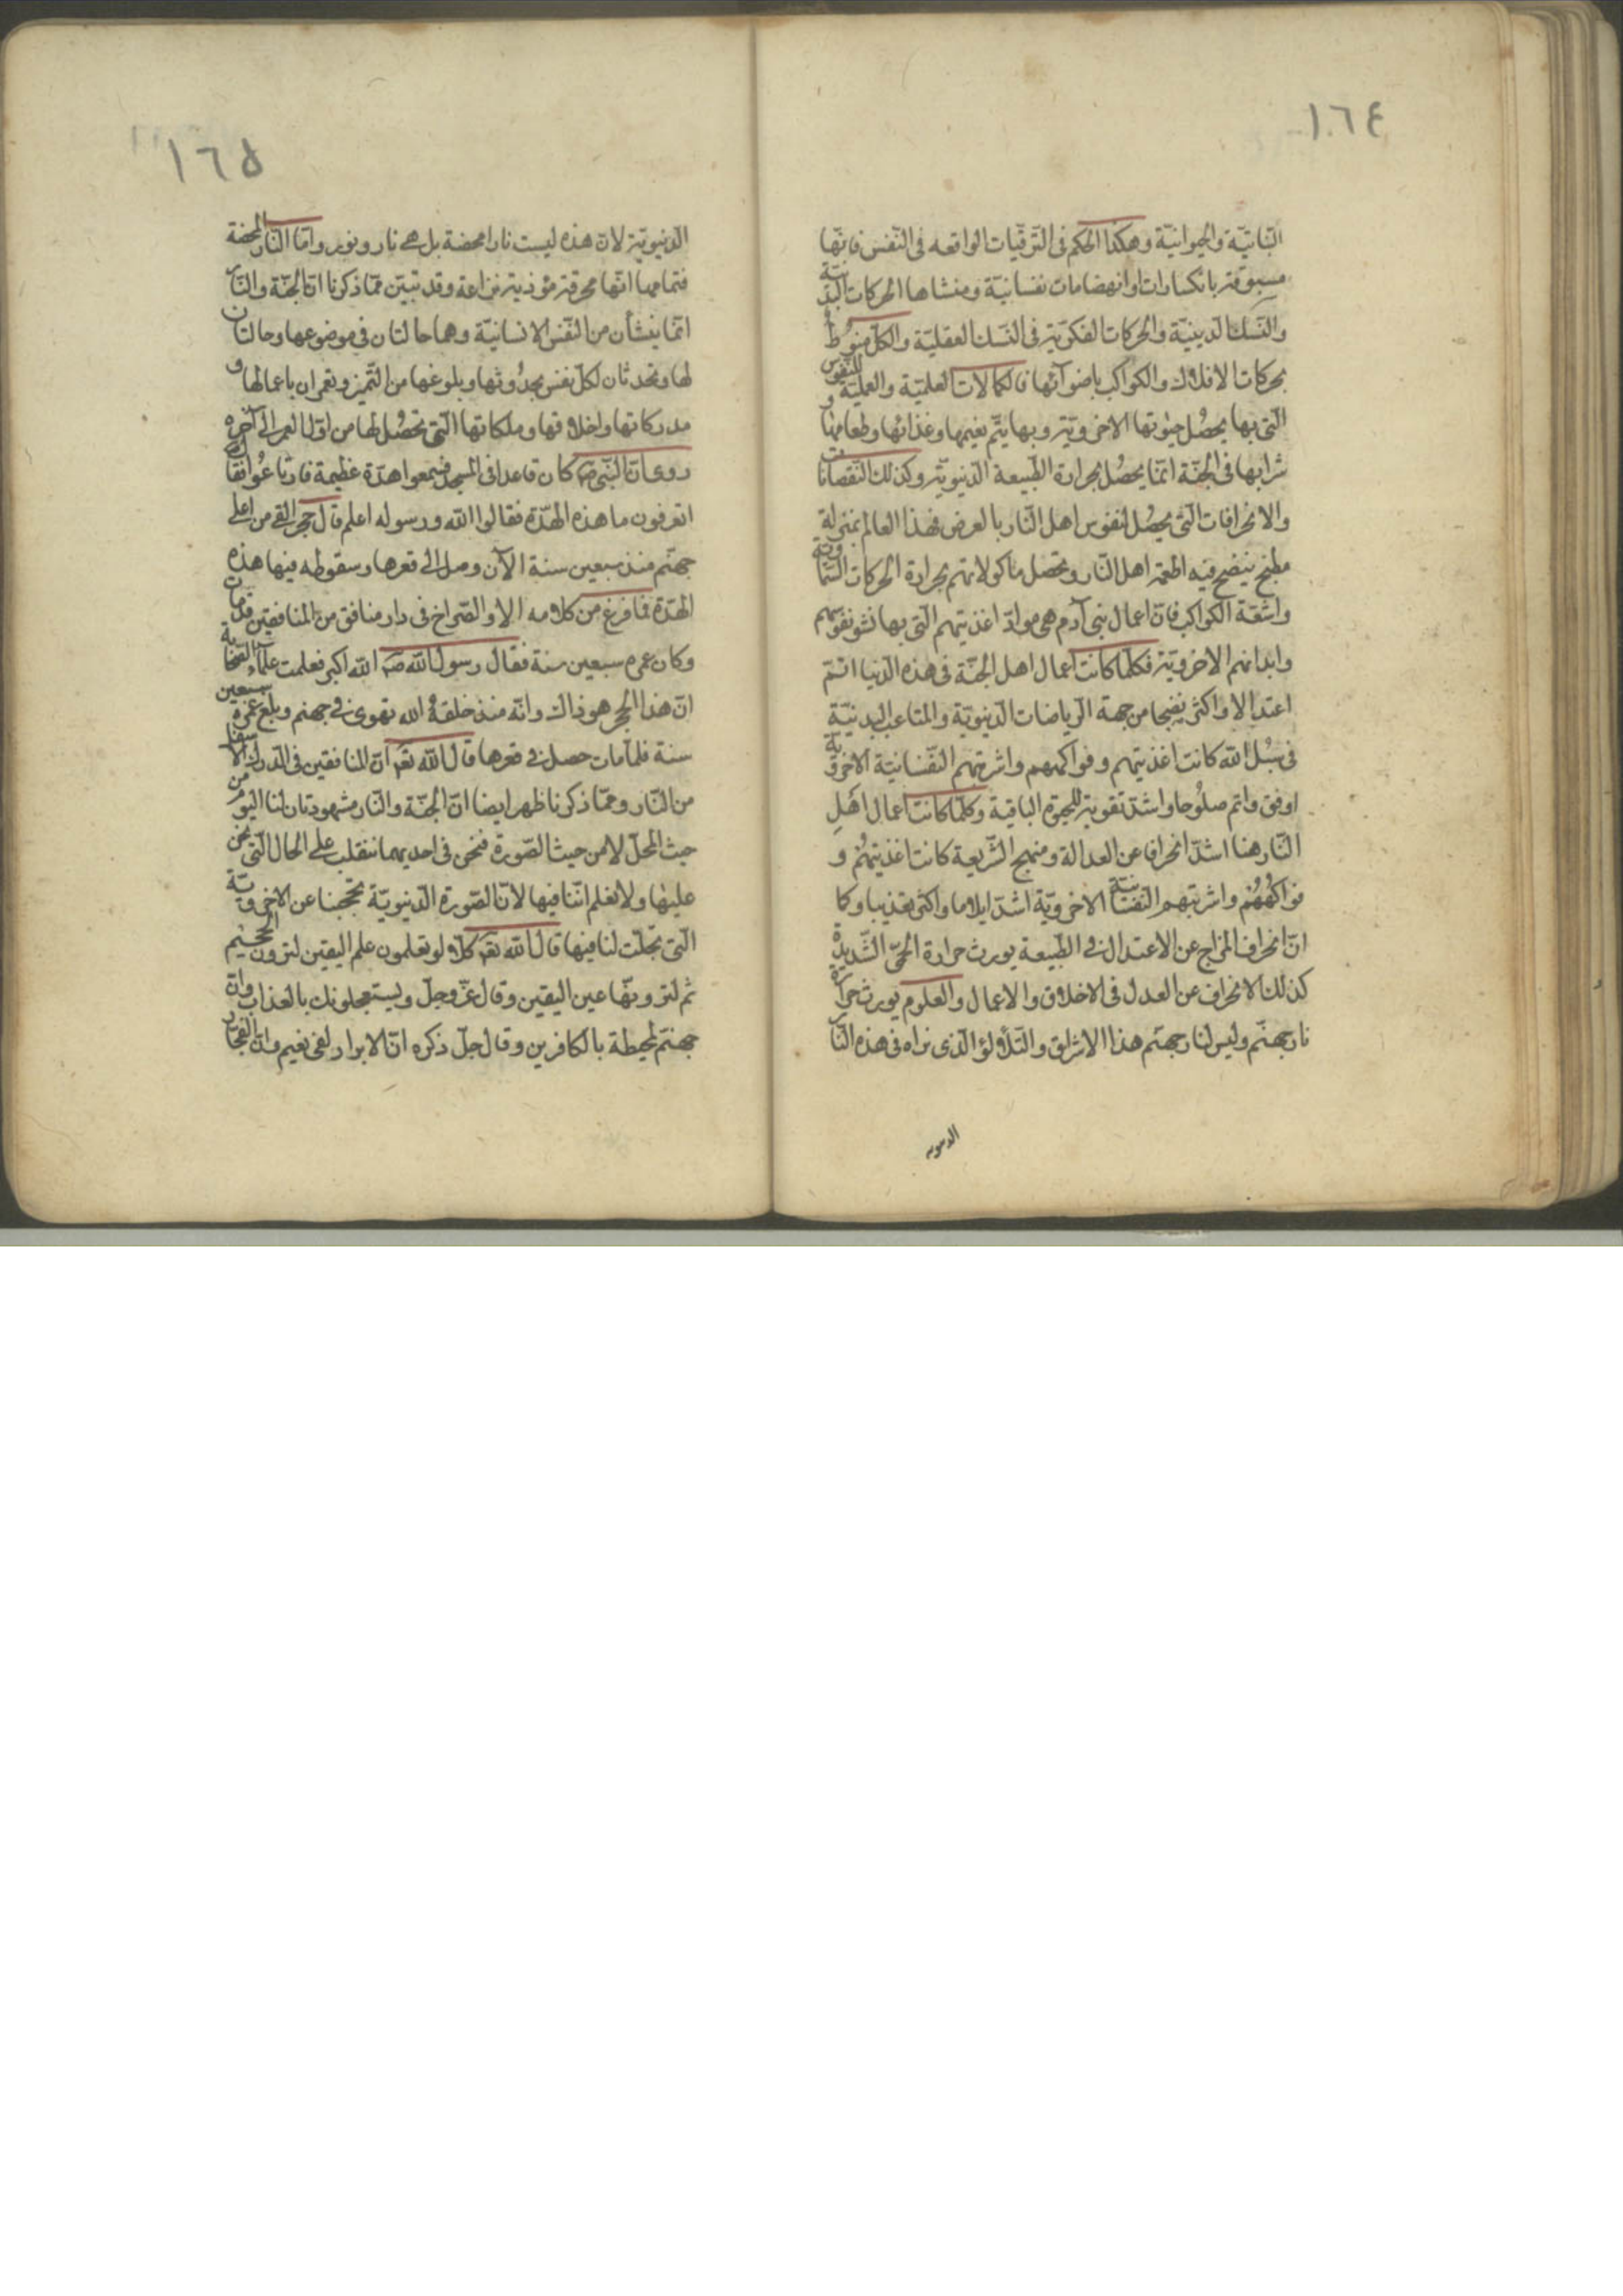 ١٦٤
النباتيّة والحيوانيّة وهكذا الحكم فى التّرقيّات الواقعه فى النّفس فانّها
مسبوقة بانكسارات وانهضامات نفسانيّة ومنشاها الحركات البدنيّة
والنّسك الدينيّة والحركات الفكريّة فى النّسك العقليّة والكلّ منوُط
بحركات الافلاك والكواكب باضوآئها فالكمالات العلميّة والعمليّة للنّفوس
التى بها يحصُل حيٰوتها الاخرويّة وبها يتمّ نعيمها وغذائها وطعامها و
شرابها فى الجنّة انّما يحصُل بحرارة الطّبيعة الدّنيويّة وكذلك النّقصانات
والانحرافات الّتى يحصُل لنفوس اهل النّار بالعرض فهذا العالم بمنزلة
مطبخ ينضج فيه اطعمة اهل النّار وتحصل ماكولاتهم بحرارة الحركات السّماويّة
واشعّة الكواكب فانّ اعمال بنى آدم هى موادّ اغذيتهم الّتى بها نشو نفوسهم
وابدانهم الاخرويّة فكلّما كانت اعمال اهل الجنّة فى هذه الدّنيا اتمّ
اعتدالا واكثر نضجا من جهة الرّياضات الدّنيويّة والمتاعب البدنيّة
فى سُبُل الله كانت اغذيتهم وفواكههم واشربتهم النّفسانيّة الاخرويّة
اوفق واتم صلُوحا واشدّ تقوية للحيوة الباقية وكلّما كانت اعمال اهل
النّار هنا اشدّ انحرافا عن العدالة ومنهج الشّريعة كانت اغذيتهُم و
فواكهُهُم واشربتهم النّفسانيّة الاخرويّة اشدّ ايلاما واكثر تعذيبا وكما
انّ انحراف المزاج عن الاعتدال فى الطّبيعة يورث حرارة الحمّى الشّديدة
كذلك الانحراف عن العدل فى الاخلاق والاعمال والعلوم يورث حرارة
نار جهنّم وليس لنار جهنّم هذا الاشراق والتّلألؤ الّذى نراه فى هذه النّار
الدنيويه
١٦٥
الدّنيويّة لانّ هذه ليست نارا محضة بل هى نار ونور وامّا النّار المحضة
فتمامها انّها محرقة مؤذية نزاعة وقد تبيّن ممّا ذكرنا انّ الجنّة والنّار
انّما ينشأن من النّفس الانسانيّة وهما حالتان فى موضوعها وحالتان
لها وتحدثان لكلّ نفس بحدُوثها وبلوغها من التّميز وتعمران باعمالها و
مدركاتها واخلاقها وملكاتها الّتى تحصُل لها من اوّل العمر الى آخره
روى انّ النّبى ص كان قاعدا فى المسجد فسمعوا هدّة عظيمة فارتاعُوا فقال
اتعرفون ما هذه الهدّة فقالوا الله ورسوله اعلم قال حجر القى من اعلى
جهنّم منذ سبعين سنة الآن وصل الى قعرها وسقوطه فيها هذه
الهدّة فما فرغ من كلامه الا والصّراخ فى دار منافق من المنافقين قد مات
وكان عمره سبعين سنة فقال رسول الله ص الله اكبر فعلمت علماء الصّحابة
انّ هذا الحجر هو ذاك وانّه منذ خلقهُ الله تهوى فى جهنم وبلغ عمره سبعين
سنة فلمّا مات حصل فى قعرها قال الله تع انّ المنافقين فى الدّرك الاسفل
من النّار وممّا ذكرنا ظهر ايضا انّ الجنّة والنّار مشهودتان لنا اليوم من
حيث المحلّ لا من حيث الصّورة فنحن فى احديهما نتقلب على الحال الّتى نحن
عليها ولا نعلم انّنا فيها لانّ الصّورة الدّنيويّة تحجبنا عن الاخرويّة
الّتى تجلّت لنا فيها قال الله تع كلّا لو تعلمون علم اليقين لترونّ الجحيم
ثم لترونّها عين اليقين وقال عزّ وجلّ ويستعجلونك بالعذاب وانّ
جهنّم لمحيطة بالكافرين وقال جلّ ذكره انّ الابرار لفى نعيم وانّ الفجار